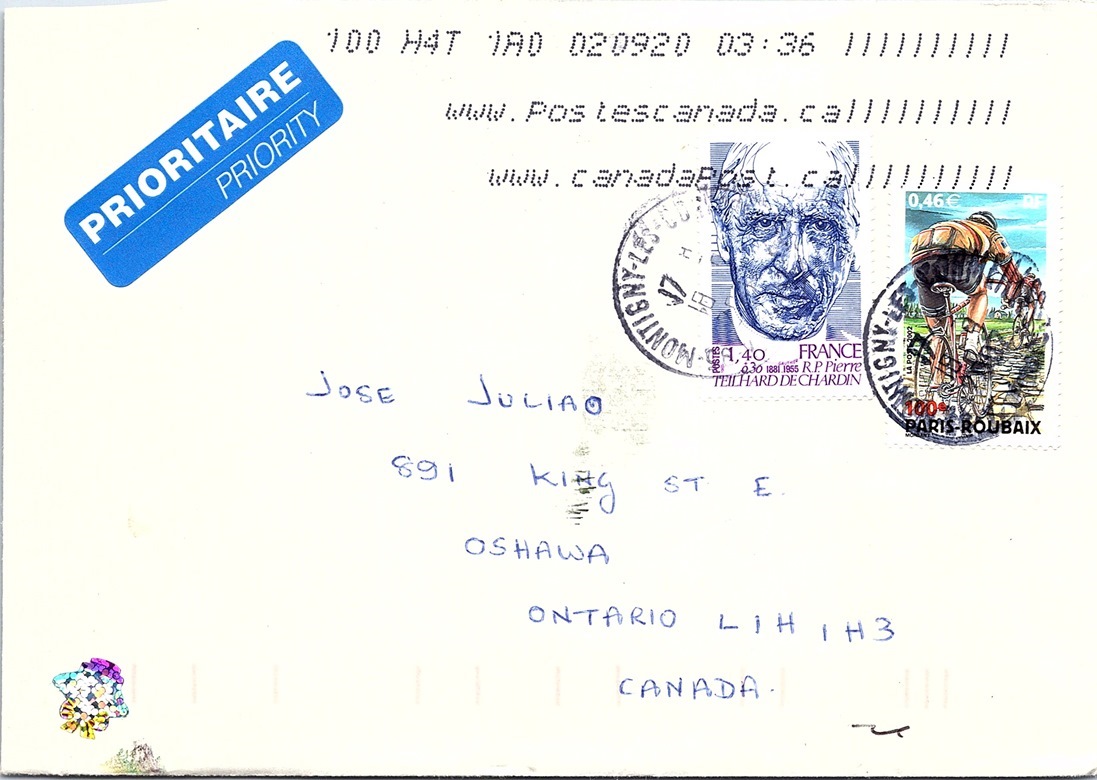 100 H4T 1A0 020920 03:36
www.Postescanada.ca
www.canadaPost.ca
PRIORITAIRE
PRIORITY
MONTIGNY-LES-CO
17
POSTES 1,40 FRANCE
0,30 1881 1955 R.P. Pierre
TEILHARD DE CHARDIN
0,46€ RF
LA POSTE 2002
100e
PARIS-ROUBAIX
JOSE JULIAO
891 KING ST E.
OSHAWA
ONTARIO L1H 1H3
CANADA.